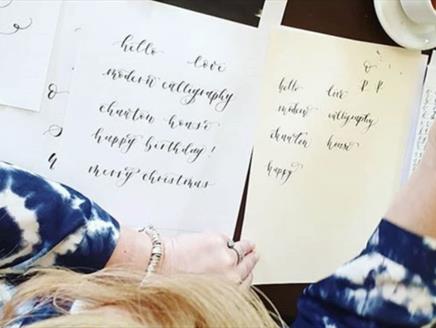 hello love
modern calligraphy
chawton house
happy birthday!
merry christmas
P. P.
hello love
modern calligraphy
chawton house
happy